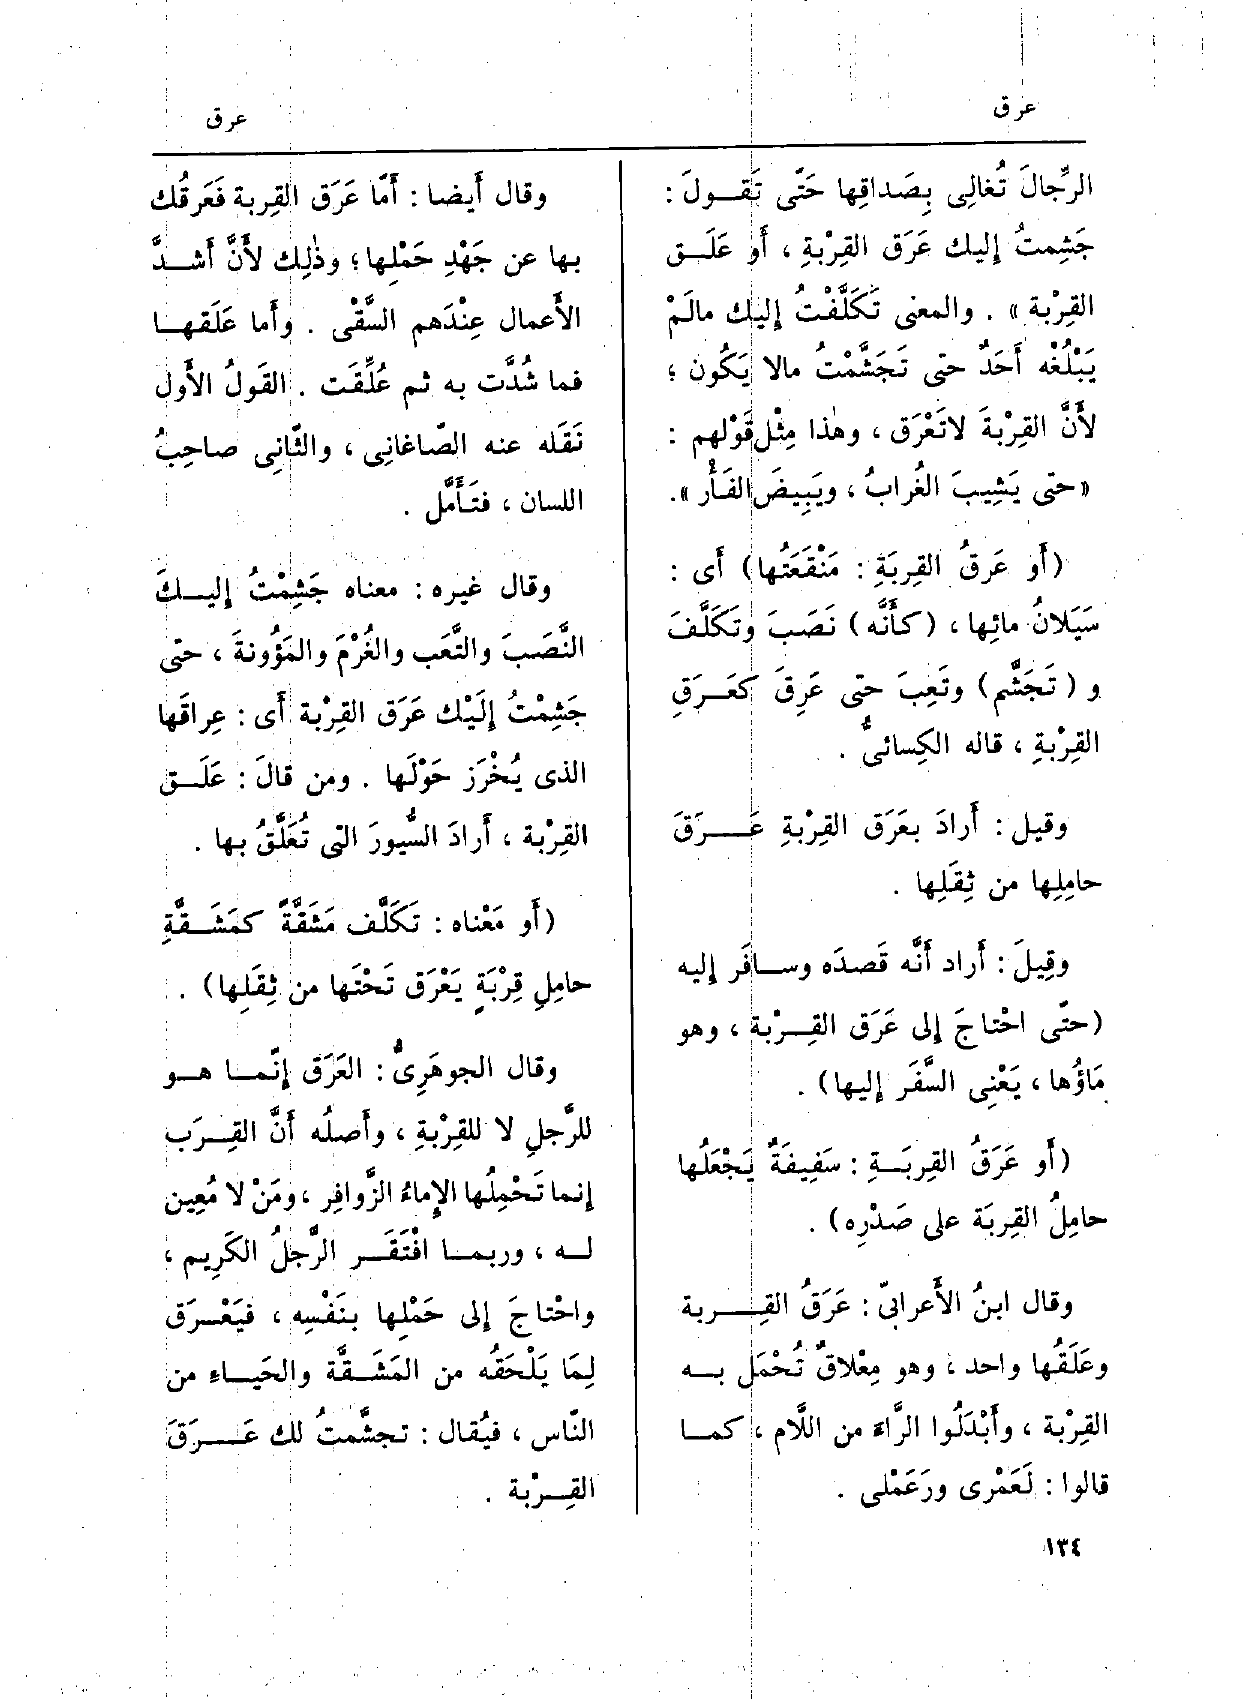 عرق
عرق
الرِّجالَ تُغالِى بِصَداقِها حَتَّى تَقـولَ :
جَشِمتُ إليك عَرَق القِرْبةِ ، أَو عَلَـق
القِرْبة » . والمعنى تَكَلَّفْتُ إليك مالَمْ
يَبْلُغْه أَحَدٌ حتى تَجَشَّمْتُ مالا يَكُون ؛
لأَنَّ القِرْبةَ لاتَعْرَق ، وهٰذا مِثْل قَوْلهم :
«حتى يَشِيبَ الغُرابُ ، ويَبِيضَ الفَأْر ».
(أَو عَرَقُ القِربَةِ : مَنْقَعَتُها) أَى :
سَيَلانُ مائِها ، (كأَنَّه) نَصَبَ وتَكَلَّفَ
و (تَجَشَّم) وتَعِبَ حتى عَرِقَ كعَـرَقِ
القِرْبةِ ، قاله الكِسائىُّ .
وقيل : أَرادَ بعَرَق القِرْبةِ عَـــرَقَ
حامِلِها من ثِقَلِها .
وقِيلَ : أَراد أَنَّه قَصدَه وسـافَر إليه
(حتَّى احْتاجَ إلى عَرَق القِـرْبة ، وهو
مَاؤُها ، يَعْنِى السَّفَر إليها) .
(أَو عَرَقُ القِربَـةِ : سَفِيفَةٌ يَجْعَلُها
حامِلُ القِربَة على صَدْرِه) .
وقال ابنُ الأَعرابىّ : عَرَقُ القِــربة
وعَلَقُها واحد ، وهو مِعْلاقٌ تُحْمَل بـه
القِرْبة ، وأَبْدَلُوا الرَّاءَ من اللَّام ، كمـا
قالوا : لَعَمْرى ورَعَمْلى .
وقال أَيضا : أَمّا عَرَق القِربة فَعَرقُك
بها عن جَهْدِ حَمْلِها ؛ وذٰلِك لأَنَّ أَشـدَّ
الأَعمال عِنْدَهم السَّقْى . وأَما عَلَقهـا
فما شُدَّت به ثم عُلِّقَت . القَولُ الأَول
نَقَله عنه الصّاغانِى ، والثّانِى صاحِبُ
اللسان ، فتَـأَمَّل .
وقال غيره : معناه جَشِمْتُ إليـكَ
النَّصَبَ والتَّعَب والغُرْمَ والمَؤُونةَ ، حتى
جَشِمْتُ إِلَيْك عَرَق القِرْبة أَى : عِراقَها
الذى يُخْرَز حَوْلَها . ومن قالَ : عَلَـق
القِرْبة ، أَرادَ السُّيورَ التى تُعَلَّقُ بها .
(أَو مَعْناه : تَكَلَّف مَشَقَّةً كمَشَـقَّةِ
حامِلِ قِرْبَةٍ يَعْرَق تَحْتَها من ثِقَلِها) .
وقال الجوهَرِىُّ : العَرَق إنّمـا هـو
للرَّجلِ لا للقِرْبةِ ، وأَصلُه أَنَّ القِـرَب
إنما تَحْمِلُها الإِماءُ الزَّوافِر ، ومَنْ لا مُعِين
لـه ، وربمـا افْتَقَـر الرَّجلُ الكَرِيم ،
واحْتاجَ إلى حَمْلِها بنَفْسِه ، فيَعْـرَق
لِمَا يَلْحَقُه من المَشَـقَّة والحَيـاءِ من
النّاس ، فيُقال : تجشَّمتُ لك عَــرَقَ
القِـرْبة .
١٣٤